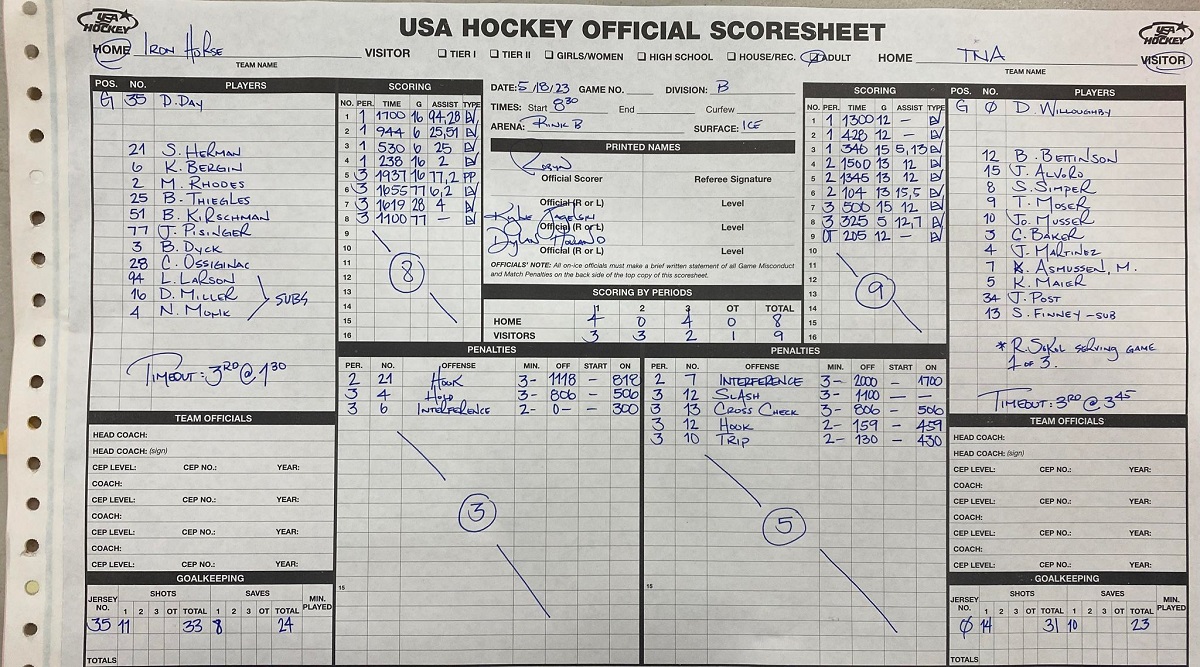 USA HOCKEY
USA HOCKEY OFFICIAL SCORESHEET
USA HOCKEY
HOME IRON HORSE VISITOR ☐ TIER I ☐ TIER II ☐ GIRLS/WOMEN ☐ HIGH SCHOOL ☐ HOUSE/REC. ☑ ADULT HOME TNA VISITOR
TEAM NAME
TEAM NAME
POS. NO. PLAYERS
G 35 D. DAY
21 S. HERMAN
6 K. BERGIN
2 M. RHODES
25 B. THIEGLES
51 B. KIRSCHMAN
77 J. PISINGER
3 B. DYCK
28 C. OSSIGINAC
94 L. LARSON
16 D. MILLER SUBS
4 N. MONK
TIMEOUT: 3RD @ 130
TEAM OFFICIALS
HEAD COACH:
HEAD COACH: (sign)
CEP LEVEL: CEP NO.: YEAR:
COACH:
CEP LEVEL: CEP NO.: YEAR:
COACH:
CEP LEVEL: CEP NO.: YEAR:
COACH:
CEP LEVEL: CEP NO.: YEAR:
GOALKEEPING
JERSEY NO. SHOTS SAVES MIN. PLAYED
1 2 3 OT TOTAL 1 2 3 OT TOTAL
35 11 33 8 24
TOTALS
SCORING
NO. PER. TIME G ASSIST TYPE
1 1 1700 16 94,28 EV
2 1 944 6 25,51 EV
3 1 530 6 25 EV
4 1 238 16 2 EV
5 3 1937 16 77,2 PP
6 3 1655 77 6,2 EV
7 3 1619 28 4 EV
8 3 1100 77 — EV
9
10
11
12
13
14
15
16
8
DATE: 5/18/23 GAME NO. DIVISION: B
TIMES: Start 830 End Curfew
ARENA: RINK B SURFACE: ICE
PRINTED NAMES
Official Scorer Referee Signature
Official (R or L) Level
KYLE
Official (R or L) Level
DYLAN
Official (R or L) Level
OFFICIALS' NOTE: All on-ice officials must make a brief written statement of all Game Misconduct
and Match Penalties on the back side of the top copy of this scoresheet.
SCORING BY PERIODS
1 2 3 OT TOTAL
HOME 4 0 4 0 8
VISITORS 3 3 2 1 9
SCORING
NO. PER. TIME G ASSIST TYPE
1 1 1300 12 — EV
2 1 428 12 — EV
3 1 346 15 5,13 EV
4 2 1500 13 12 EV
5 2 1345 13 12 EV
6 2 104 13 15,5 EV
7 3 500 15 12 EV
8 3 325 5 12,7 EV
9 OT 205 12 — EV
10
11
12
13
14
15
16
9
PENALTIES
PER. NO. OFFENSE MIN. OFF START ON
2 21 HOOK 3- 1118 — 818
3 4 HOLD 3- 806 — 506
3 6 INTERFERENCE 2- 0— — 300
3
15
PENALTIES
PER. NO. OFFENSE MIN. OFF START ON
2 7 INTERFERENCE 3- 2000 — 1700
3 12 SLASH 3- 1100 — —
3 13 CROSS CHECK 3- 806 — 506
3 12 HOOK 2- 159 — 459
3 10 TRIP 2- 130 — 430
5
15
POS. NO. PLAYERS
G Ø D. WILLOUGHBY
12 B. BETTINSON
15 J. ALVORO
8 S. SIMPER
9 T. MOSER
10 JO. MUSSER
3 C. BAKER
4 J. MARTINEZ
7 ASMUSSEN, M.
5 K. MAIER
34 J. POST
13 S. FINNEY -SUB
* R. SOKOL SERVING GAME
1 OF 3.
TIMEOUT: 3RD @ 345
TEAM OFFICIALS
HEAD COACH:
HEAD COACH: (sign)
CEP LEVEL: CEP NO.: YEAR:
COACH:
CEP LEVEL: CEP NO.: YEAR:
COACH:
CEP LEVEL: CEP NO.: YEAR:
COACH:
CEP LEVEL: CEP NO.: YEAR:
GOALKEEPING
JERSEY NO. SHOTS SAVES MIN. PLAYED
1 2 3 OT TOTAL 1 2 3 OT TOTAL
Ø 14 31 10 23
TOTALS